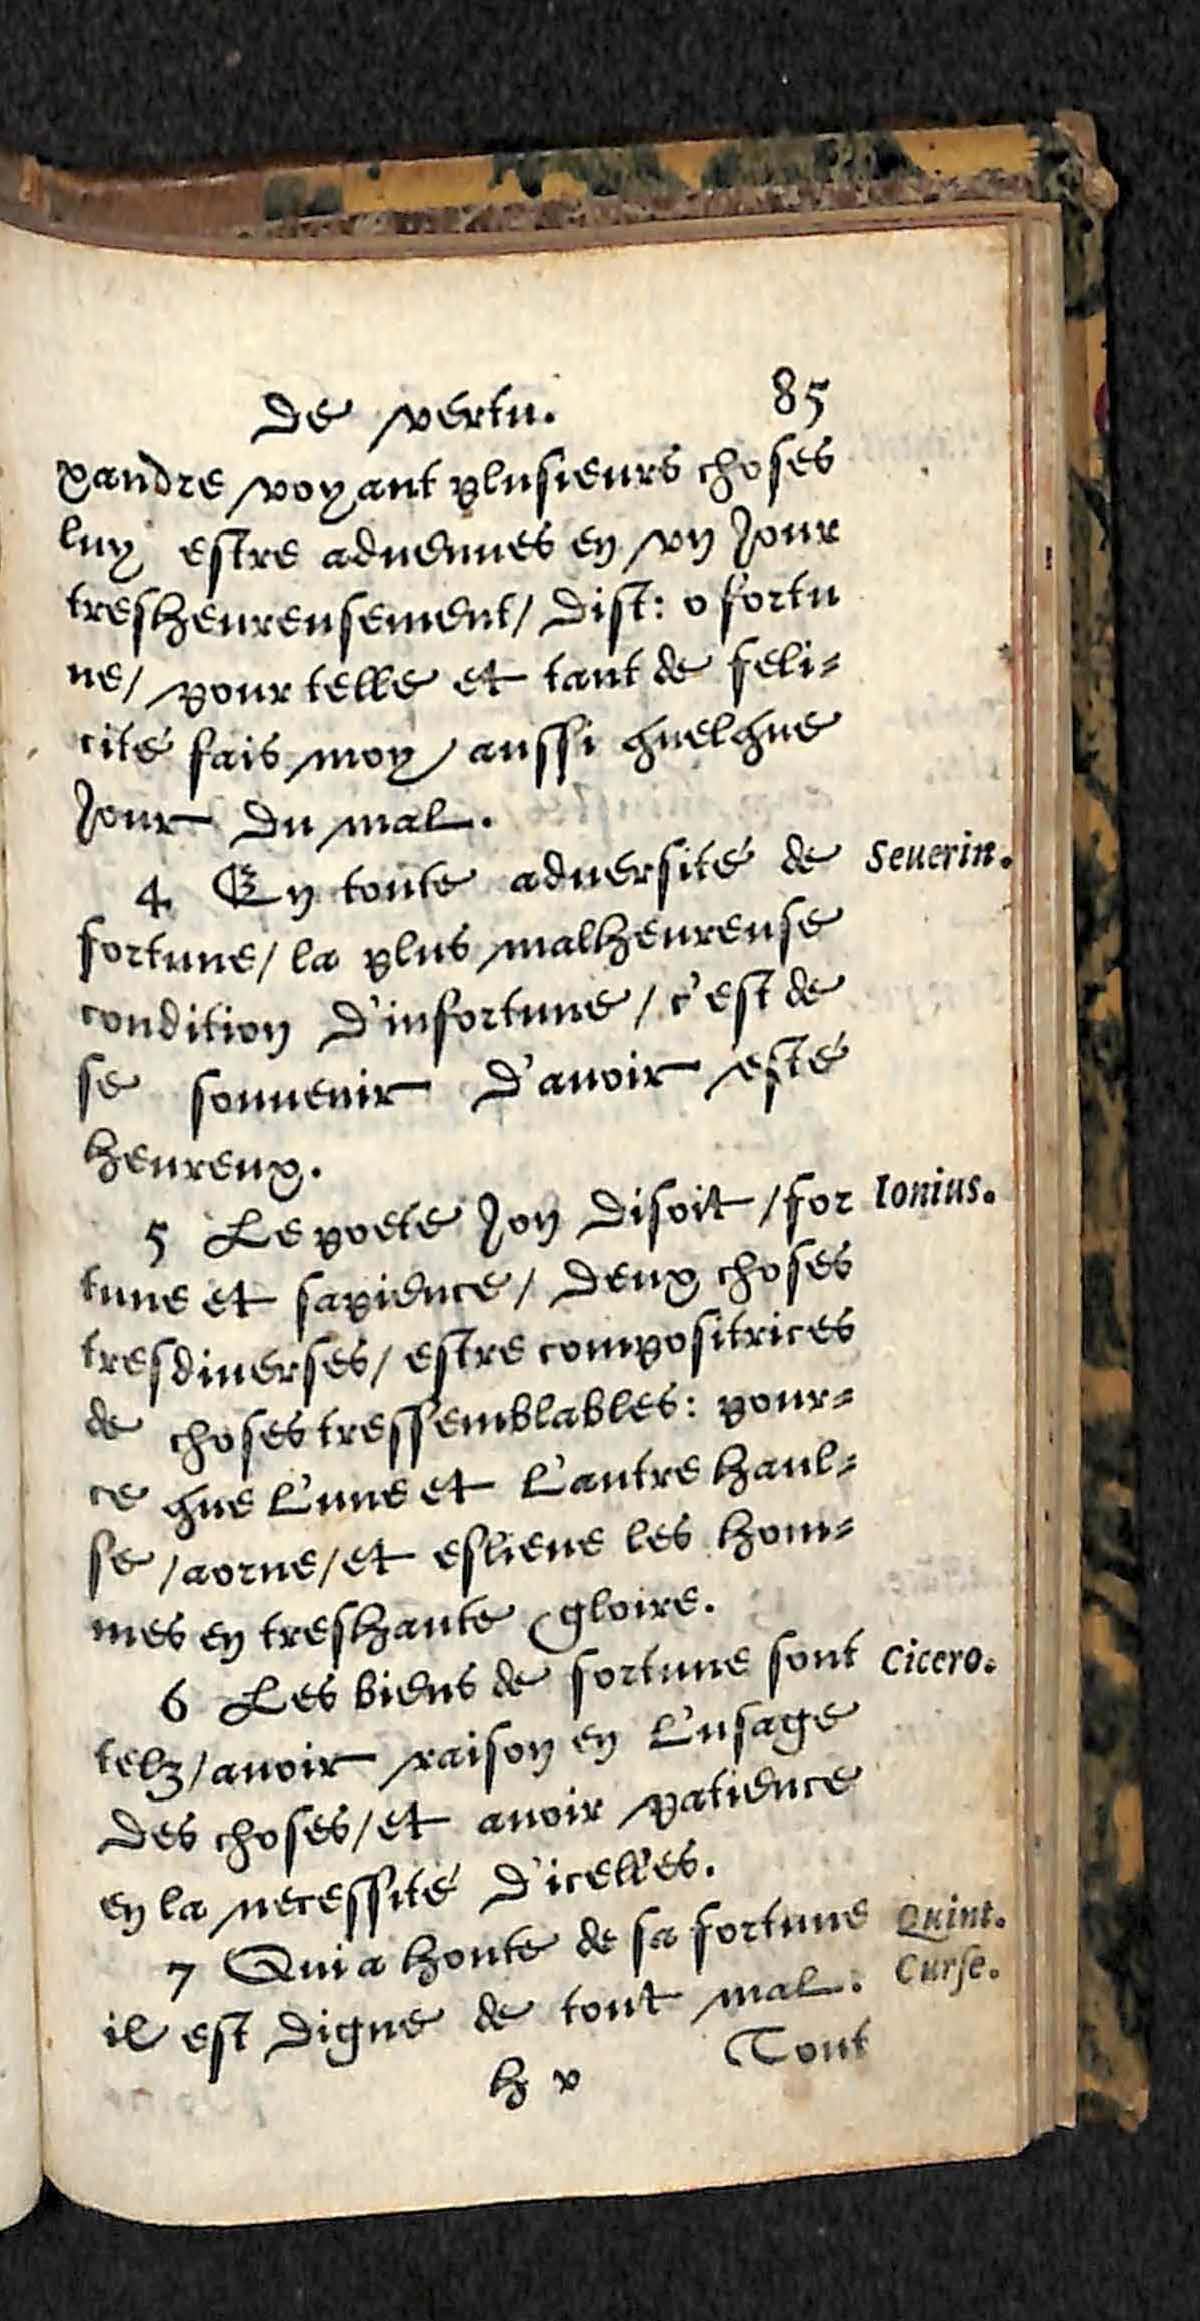 de vertu. 85
xandre voyant plusieurs choses
luy estre aduenues en vn Jour
tresheureusement/ dist: o fortu
ne/ pour telle et tant de feli-
cité fais moy/ aussi quelque
Jour du mal.
4 En toute aduersité de Seuerin.
fortune/ la plus malheureuse
condition d'infortune/ c'est de
se souuenir d'auoir esté
heureux.
5 Le poete Jon disoit/ for Ionius.
tune et sapience/ deux choses
tresdiuerses/ estre compositrices
de choses tressemblables: pour-
ce que l'une et l'autre haul-
se/ aorne/ et eslieue les hom-
mes en treshaute gloire.
6 Les biens de fortune sont Cicero.
telz/ auoir raison en l'usage
des choses/ et auoir patience
en la necessité d'icelles.
7 Qui a honte de sa fortune Quint.
il est digne de tout mal. Curse.
h v Tout